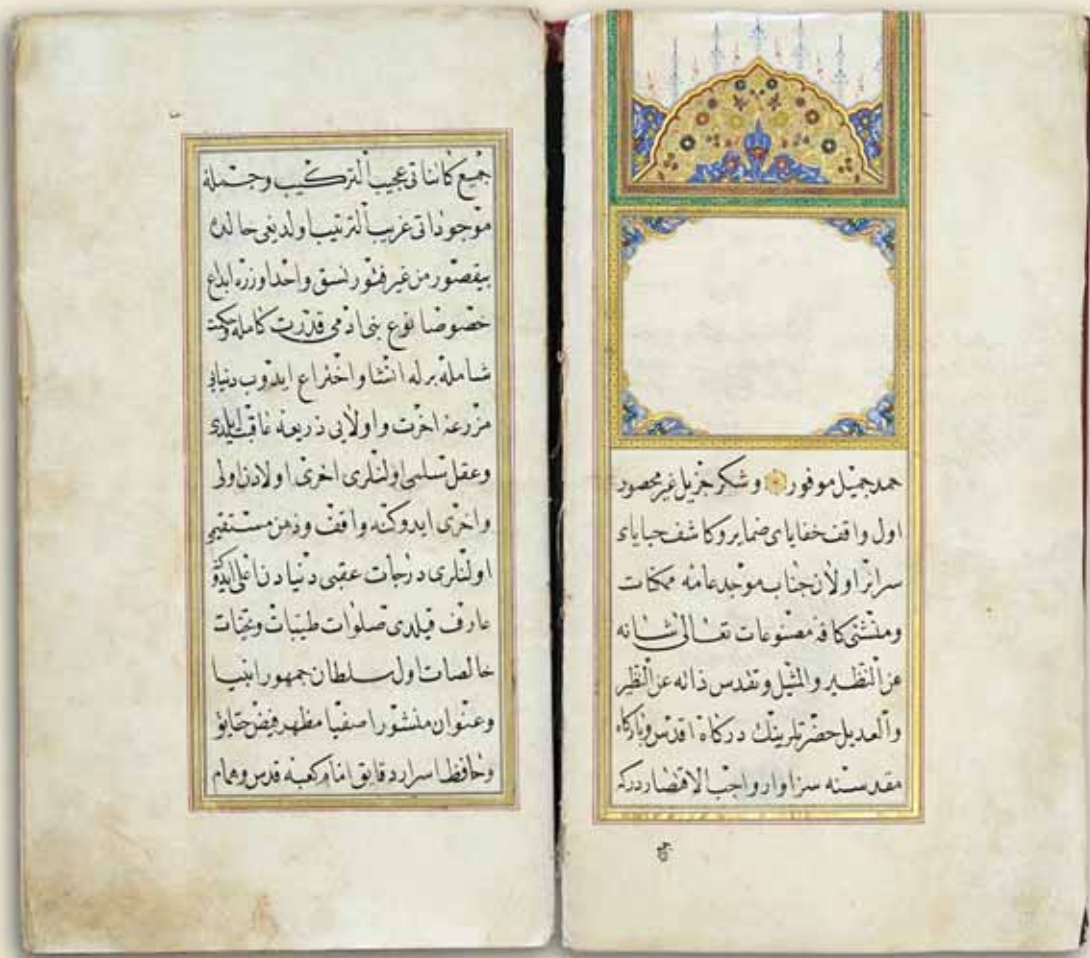 حمد جميل موفور و شكر جزيل غير محصور
اول واقف خفاياى ضماير و كاشف خباياى
سرائر اولان جناب موجد عامه ممكنات
ومنشئ كافه مصنوعات تعالى شانه
عن النظير والمثيل وتقدس ذاته عن النظير
والعديل حضرتلرينك دركاه اقدس وباركاه
مقدسنه سزاوار و واجب الاقتصار دركه
جميع كائناتى عجيب التركيب وجمله
موجوداتى غريب الترتيب اولديغى حالده
بيقصور من غير فتور نسق واحد اوزره ابداع
خصوصا نوع بنى ادمى قدرت كامله وحكمت
شامله برله انشا و اختراع ايدوب دنيايى
مزرعه اخرت و اولايى ذريعه عاقبت ايلدى
وعقل سليمى اولنلرى اخرى اولادن اولى
واحرى ايدوكنه واقف وذهن مستقيمى
اولنلرى درجات عقبى دنيادن اعلى ايدوكنه
عارف قيلدى صلوات طيبات وتحيات
خالصات اول سلطان جمهور انبيا
وعنوان منشور اصفيا مظهر فيض حقايق
وحافظ اسرار دقايق امام كعبه قدس وهمام